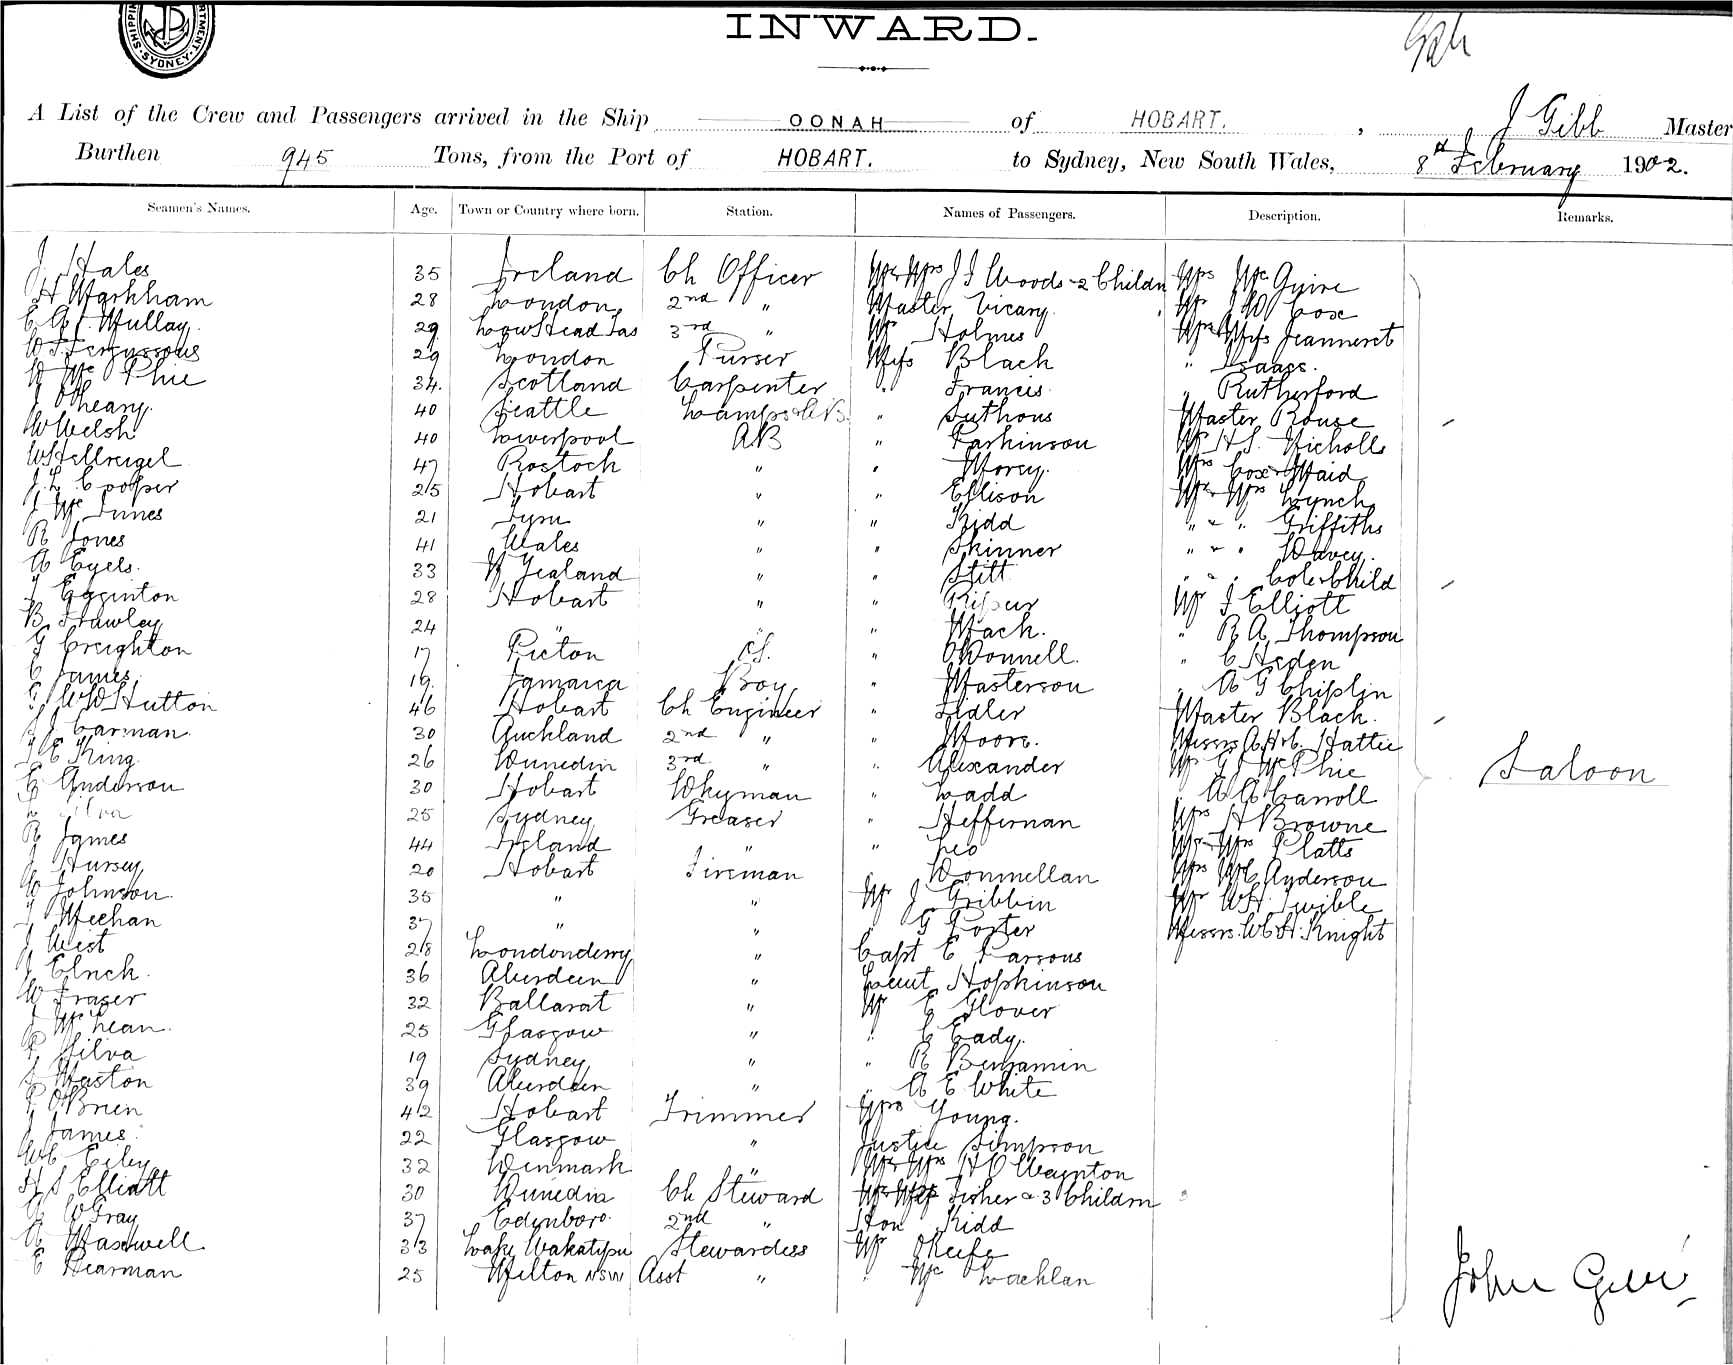 SHIPPING DEPARTMENT · SYDNEY ·
INWARD.
A List of the Crew and Passengers arrived in the Ship OONAH of HOBART. , J Gibb Master
Burthen 945 Tons, from the Port of HOBART. to Sydney, New South Wales, 8th February 1902.
Seamen's Names. Age. Town or Country where born. Station. Names of Passengers. Description. Remarks.
J Hales 35 Ireland Ch Officer Mr & Mrs J J Woods & 2 Childn Mrs McGuire
H Markham 28 London 2nd " Master Vicary. Mr J W Cox
Mullay. 29 Low Head Tas 3rd " Mr Holmes Mr & Miss Jeanneret
W J Fergussons 29 London Purser Miss Black " Isaacs.
Mc Phie 34. Scotland Carpenter " Francis " Rutherford
J Oheary. 40 Seattle Lamps & AB. " Suthous Master Rouse
W Welsh 40 Liverpool AB " Parkinson Mr H S. Nicholls
W Hellreigel 47 Rostock " " Morey. Mrs Cox & Maid
J. L. Cooper 25 Hobart " " Ellison Mr & Mrs Lynch
J Mc Innes 21 " " Kidd " " " Griffiths
R Jones 41 Wales " " Skinner " " " Davey.
A Eyels. 33 N Zealand " " Stitt " " " Cole & Child
J Egginton 28 Hobart " " Mr J Elliott
B Frawley 24 " " " Mack. " R A Thompson
G Creighton 17 Picton O.S. " O'Donnell. " C Heden
C James. 19. Jamaica Boy " Masterson " A G Chiplin
G W D Hutton 46 Hobart Ch Engineer " Fidler Master Black.
J J Carman. 30 Auckland 2nd " " Moore. Messrs A & C. Hattie
J E King. 26 Dunedin 3rd " " Alexander Mr G J McPhie
C Anderson 30 Hobart Dkyman " Ladd " W A Carroll
Silva 25 Sydney Greaser " Heffernan Mrs H Browne
R James 44 Ireland " " Leo Mr & Mrs Platts
J Hursey 20 Hobart Fireman " Donnellan Mrs Mc Anderson
W Johnson. 35 " " Mr J Gribbin Mr W H. Twible
J Meehan 37 " " " G Foster Messrs. W & H. Knight
J West 28 Londonderry " Capt E Parsons
J Elnch. 36 Aberdeen " Leiut Hopkinson
W Fraser 32 Ballarat " Mr E Glover
J McLean. 25 Glasgow " " C Eady.
F Silva 19 Sydney " " R Benjamin
J Waston 39 Aberdeen " " A E White
P O'Brien 42 Hobart Trimmer Mrs Young.
J James. 22 Glasgow " Justice Simpson
Wc Eiley 32 Denmark " Mr & Mrs H O Waynton
H. S Elliott 30 Dunedin Ch Steward Mr & Mrs Fisher & 3 Childrn
W Gray 37 Edinboro. 2nd " Hon Kidd
A Maxwell 33 Lake Wakatipu Stewardess Mr O'Keefe
C Hearman 25 Milton NSW Asst " " Mc Lachlan
Saloon
John